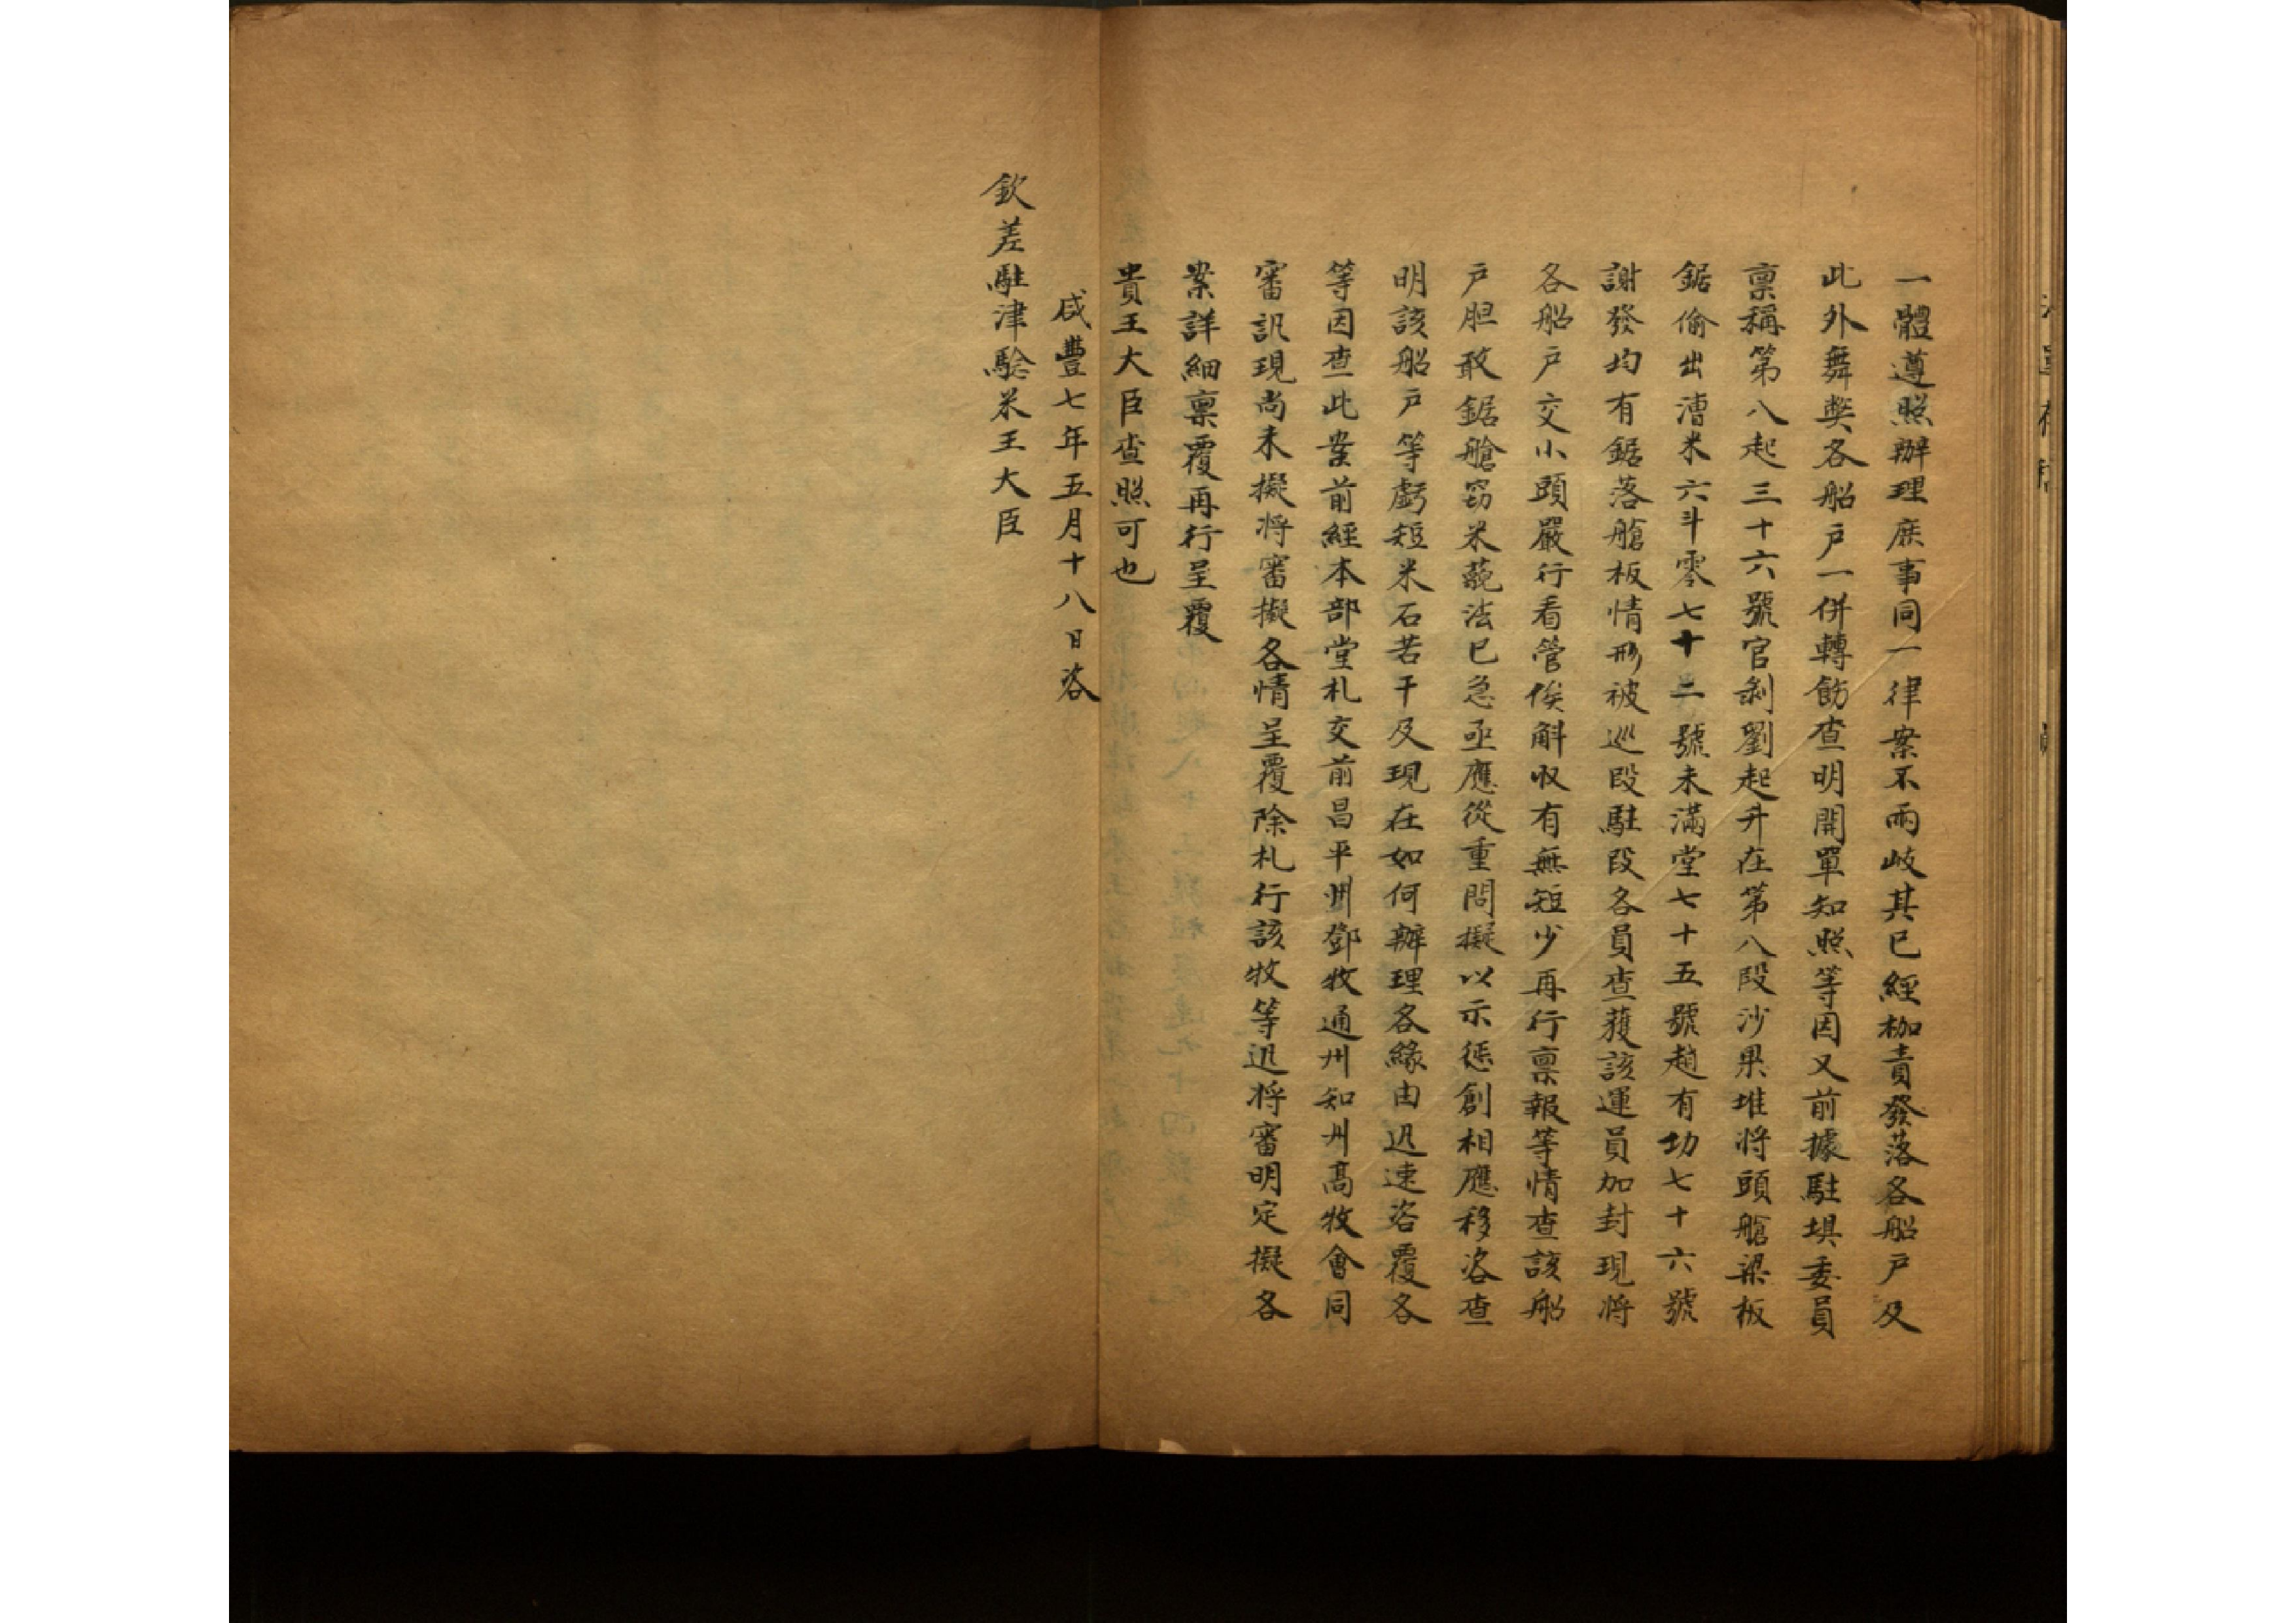 一體遵照辦理庶事同一律案不兩歧其已經枷責發落各船戶及
此外舞弊各船戶一併轉飭查明開單知照等因又前據駐垻委員
禀稱第八起三十六號官剝劉起升在第八段沙果堆將頭艙梁板
鋸偷出漕米六斗零七十二號未滿堂七十五號趙有功七十六號
謝發均有鋸落艙板情形被巡段駐段各員查獲該運員加封現將
各船戶交小頭嚴行看管俟斛收有無短少再行禀報等情查該船
戶胆敢鋸艙窃米藐法已急亟應從重問擬以示懲創相應移咨查
明該船戶等虧短米石若干及現在如何辦理各緣由迅速咨覆各
等因查此案前經本部堂札交前昌平州鄧牧通州知州高牧會同
審訊現尚未擬將審擬各情呈覆除札行該牧等迅將審明定擬各
案詳細禀覆再行呈覆
貴王大臣查照可也
咸豐七年五月十八日咨
欽差駐津驗米王大臣